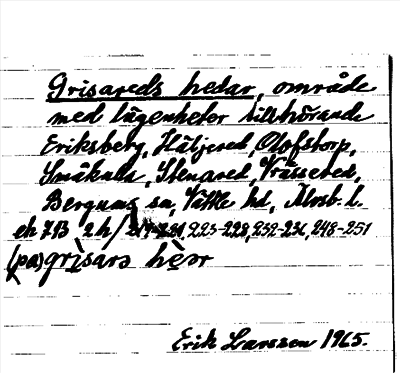 Grisareds hedar, område
med lägenheter tillhörande
Eriksberg, Häljered, Olofstorp,
Småkulla, Stenared, Vrässered,
Bergums sn, Vättle hd, Älvsb. l.
ek 7B 2h/ 217-221, 223-228, 232-236, 248-251
(pa) grìsarə hèər
Erik Larsson 1965.